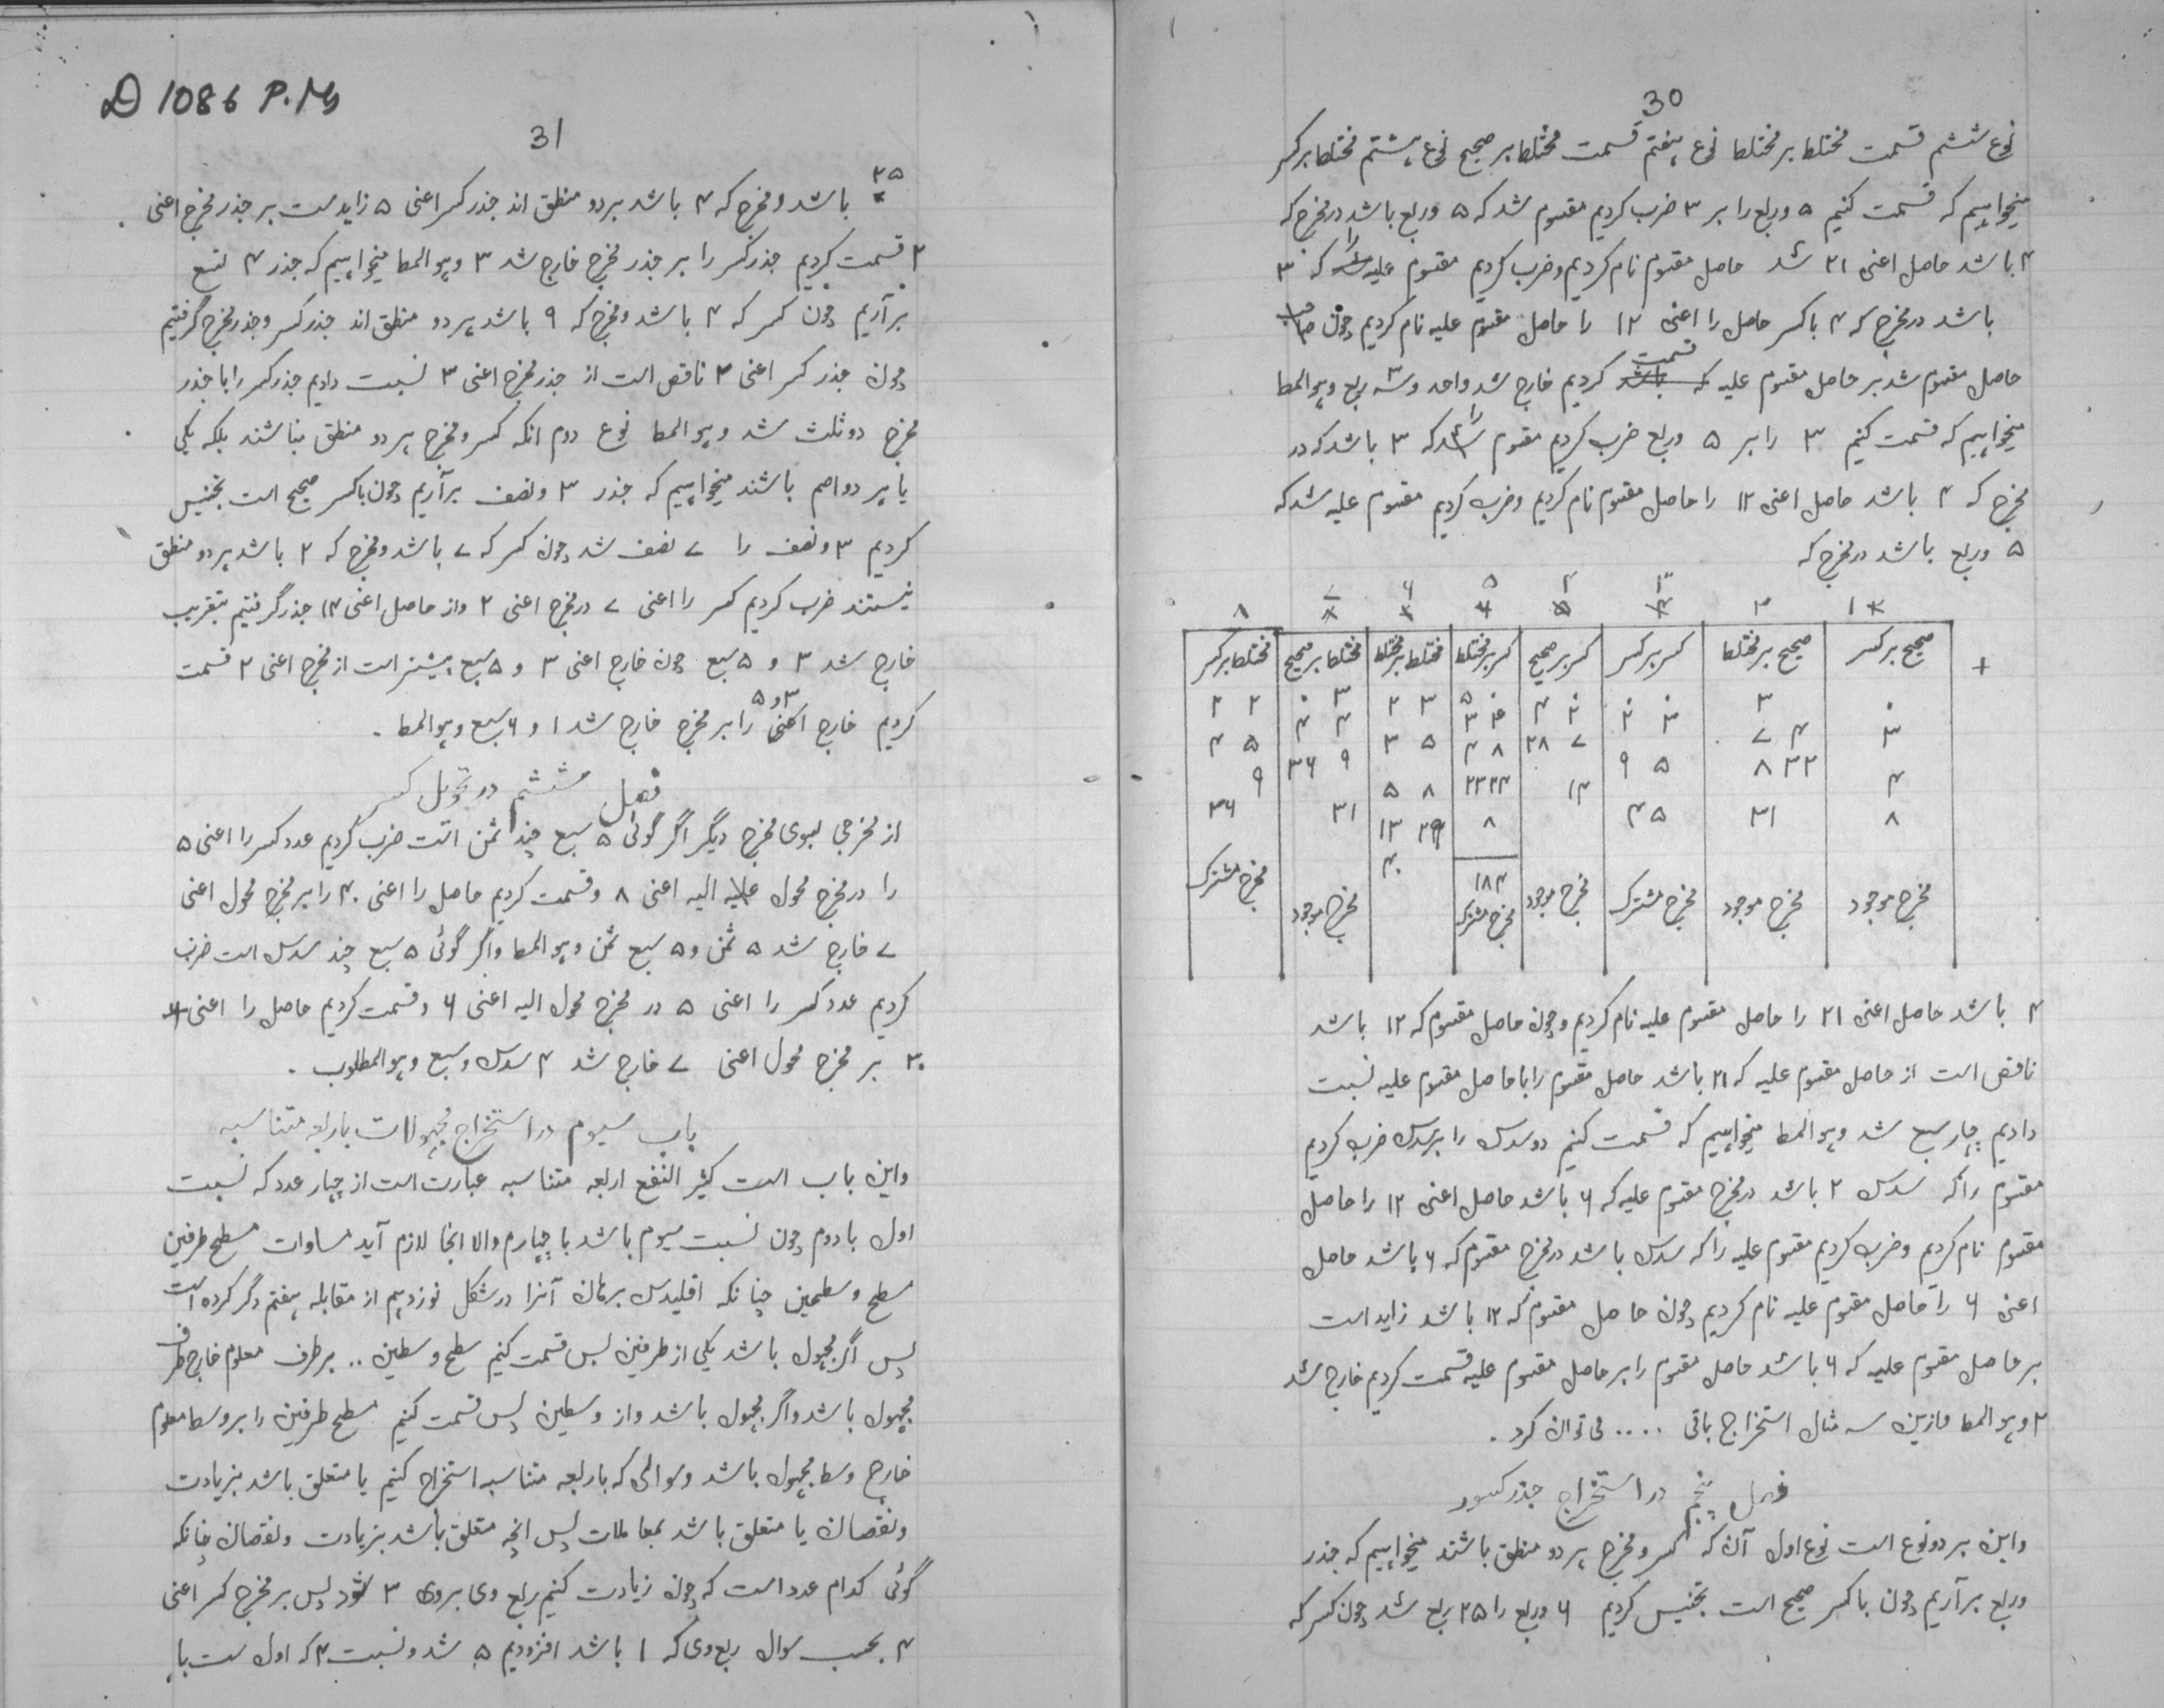 30
نوع ششم قسمت مختلط بر مختلط نوع ہفتم قسمت مختلط بر صحیح نوع ہشتم مختلط بر کسر
میخواہیم کہ قسمت کنیم ۵ وربع را بر ۳ ضرب کردیم مقسوم شد کہ ۵ وربع باشد در مخرج کہ
۴ باشد حاصل اعنی ۲۱ شد حاصل مقسوم نام کردیم وضرب کردیم مقسوم علیہ را کہ ۳
باشد در مخرج کہ ۴ باکسر حاصل را اعنی ۱۲ را حاصل مقسوم علیہ نام کردیم چون
حاصل مقسوم شد بر حاصل مقسوم علیہ قسمت کردیم خارج شد واحد وسہ ربع وہو المط
میخواہیم کہ قسمت کنیم ۳ را بر ۵ وربع ضرب کردیم مقسوم را کہ ۳ باشد کہ در
مخرج کہ ۴ باشد حاصل اعنی ۱۲ را حاصل مقسوم نام کردیم وضرب کردیم مقسوم علیہ شد کہ
۵ وربع باشد در مخرج کہ
۱ ۲ ۳ ۴ ۵ ۶ ۷ ۸
صحیح بر کسر صحیح بر مختلط کسر بر کسر کسر بر صحیح کسر بر مختلط مختلط بر مختلط مختلط بر صحیح مختلط بر کسر
۰ ۳ ۰ ۰ ۰ ۰ ۰ ۵ ۳ ۲ ۳ ۰ ۲ ۲
۳ ۴ ۷ ۳ ۲ ۲ ۴ ۴ ۳ ۵ ۳ ۴ ۴ ۵ ۴
۴ ۳۲ ۸ ۵ ۹ ۷ ۲۸ ۸ ۴ ۸ ۵ ۹ ۳۶ ۹
۸ ۳۱ ۴۵ ۱۴ ۲۳ ۲۴ ۸ ۲۹ ۱۳ ۳۱ ۳۶
۴۰
۱۸۴
مخرج موجود مخرج موجود مخرج مشترک مخرج موجود مخرج مشترک مخرج موجود مخرج مشترک
۴ باشد حاصل اعنی ۲۱ را حاصل مقسوم علیہ نام کردیم وچون حاصل مقسوم کہ ۱۲ باشد
ناقص است از حاصل مقسوم علیہ کہ ۲۱ باشد حاصل مقسوم را باحاصل مقسوم علیہ نسبت
دادیم چہار سبع شد وہو المط میخواہیم کہ قسمت کنیم دو سدس را بر سدس ضرب کردیم
مقسوم را کہ سدس ۲ باشد در مخرج مقسوم علیہ کہ ۶ باشد حاصل اعنی ۱۲ را حاصل
مقسوم نام کردیم وضرب کردیم مقسوم علیہ را کہ سدس باشد در مخرج مقسوم کہ ۶ باشد حاصل
اعنی ۶ را حاصل مقسوم علیہ نام کردیم چون حاصل مقسوم کہ ۱۲ باشد زاید است
بر حاصل مقسوم علیہ کہ ۶ باشد حاصل مقسوم را بر حاصل مقسوم علیہ قسمت کردیم خارج شد
۲ وہو المط وازین سہ مثال استخراج باقی .... می توان کرد .
فصل پنجم در استخراج جذر کسور
واین بر دو نوع است نوع اول آن کہ کسر ومخرج ہر دو منطق باشند میخواہیم کہ جذر
وربع بر آریم چون باکسر صحیح است تجنیس کردیم ۶ وربع را ۲۵ ربع شد چون کسر کہ
D 1086 P.Ms
31
۲۵ باشد ومخرج کہ ۴ باشد ہر دو منطق اند جذر کسر اعنی ۵ زاید ست بر جذر مخرج اعنی
۲ قسمت کردیم جذر کسر را بر جذر مخرج خارج شد ۳ وہو المط میخواہیم کہ جذر ۴ تسع
بر آریم چون کسر کہ ۴ باشد ومخرج کہ ۹ باشد ہر دو منطق اند جذر کسر وجذر مخرج گرفتیم
چون جذر کسر اعنی ۲ ناقص است از جذر مخرج اعنی ۳ نسبت دادیم جذر کسر را با جذر
مخرج دو ثلث شد وہو المط نوع دوم انکہ کسر ومخرج ہر دو منطق نباشند بلکہ یکی
یا ہر دو اصم باشند میخواہیم کہ جذر ۳ ونصف بر آریم چون باکسر صحیح است تجنیس
کردیم ۳ ونصف را ۷ نصف شد چون کسر کہ ۷ باشد ومخرج کہ ۲ باشد ہر دو منطق
نیستند ضرب کردیم کسر را اعنی ۷ در مخرج اعنی ۲ واز حاصل اعنی ۱۴ جذر گرفتیم بتقریب
خارج شد ۳ و ۵ سبع چون خارج اعنی ۳ و ۵ سبع بیشتر است از مخرج اعنی ۲ قسمت
کردیم خارج اعنی ۳ و ۵ را بر مخرج خارج شد ۱ و ۶ سبع وہو المط .
فصل ششم در تحویل کسر
از مخرجی بسوی مخرج دیگر اگر گوئی ۵ سبع چند ثمن است ضرب کردیم عدد کسر را اعنی ۵
را در مخرج محول الیہ اعنی ۸ وقسمت کردیم حاصل را اعنی ۴۰ را بر مخرج محول اعنی
۷ خارج شد ۵ ثمن و ۵ سبع ثمن وہو المط واگر گوئی ۵ سبع چند سدس است ضرب
کردیم عدد کسر را اعنی ۵ در مخرج محول الیہ اعنی ۶ وقسمت کردیم حاصل را اعنی
۳۰ بر مخرج محول اعنی ۷ خارج شد ۴ سدس وسبع وہو المطلوب .
باب سیوم در استخراج مجہولات باربعہ متناسبہ
واین باب است کثیر النفع اربعہ متناسبہ عبارت است از چہار عدد کہ نسبت
اول با دوم چون نسبت سیوم باشد با چہارم والا انجا لازم آید مساوات مسطح طرفین
مسطح وسطین چنانکہ اقلیدس برہان آنرا در شکل نوزدہم از مقابلہ ہفتم ذکر کردہ است
پس اگر مجہول باشد یکی از طرفین پس قسمت کنیم سطح وسطین .. بر طرف معلوم خارج طرف
مجہول باشد واگر مجہول باشد واز وسطین پس قسمت کنیم مسطح طرفین را بر وسط معلوم
خارج وسط مجہول باشد وسوالی کہ باربعہ متناسبہ استخراج کنیم یا متعلق باشد بزیادت
ونقصان یا متعلق باشد بمعاملات پس انچہ متعلق باشد بزیادت ونقصان چنانکہ
گوئی کدام عدد است کہ چون زیادت کنیم ربع وی بروی ۳ شود پس بر مخرج کسر اعنی
۴ بحسب سوال ربع وی کہ ۱ باشد افزودیم ۵ شد ونسبت ۴ کہ اول ست با